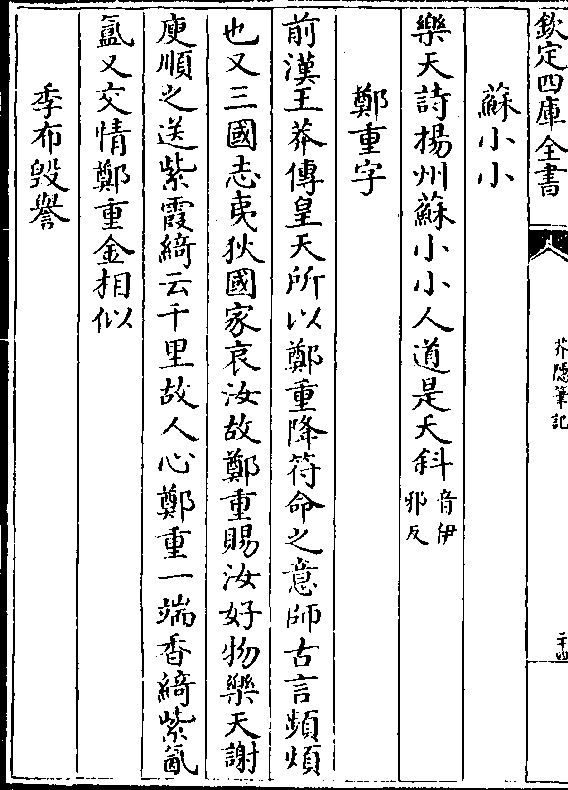 欽定四庫全書
芥隱筆記
二十四
蘇小小
樂天詩揚州蘇小小人道是夭斜音伊
邪反
鄭重字
前漢王莽傳皇天所以鄭重降符命之意師古言頻煩
也又三國志夷狄國家哀汝故鄭重賜汝好物樂天謝
庾順之送紫霞綺云千里故人心鄭重一端香綺紫氤
氳又交情鄭重金相似
季布毀譽